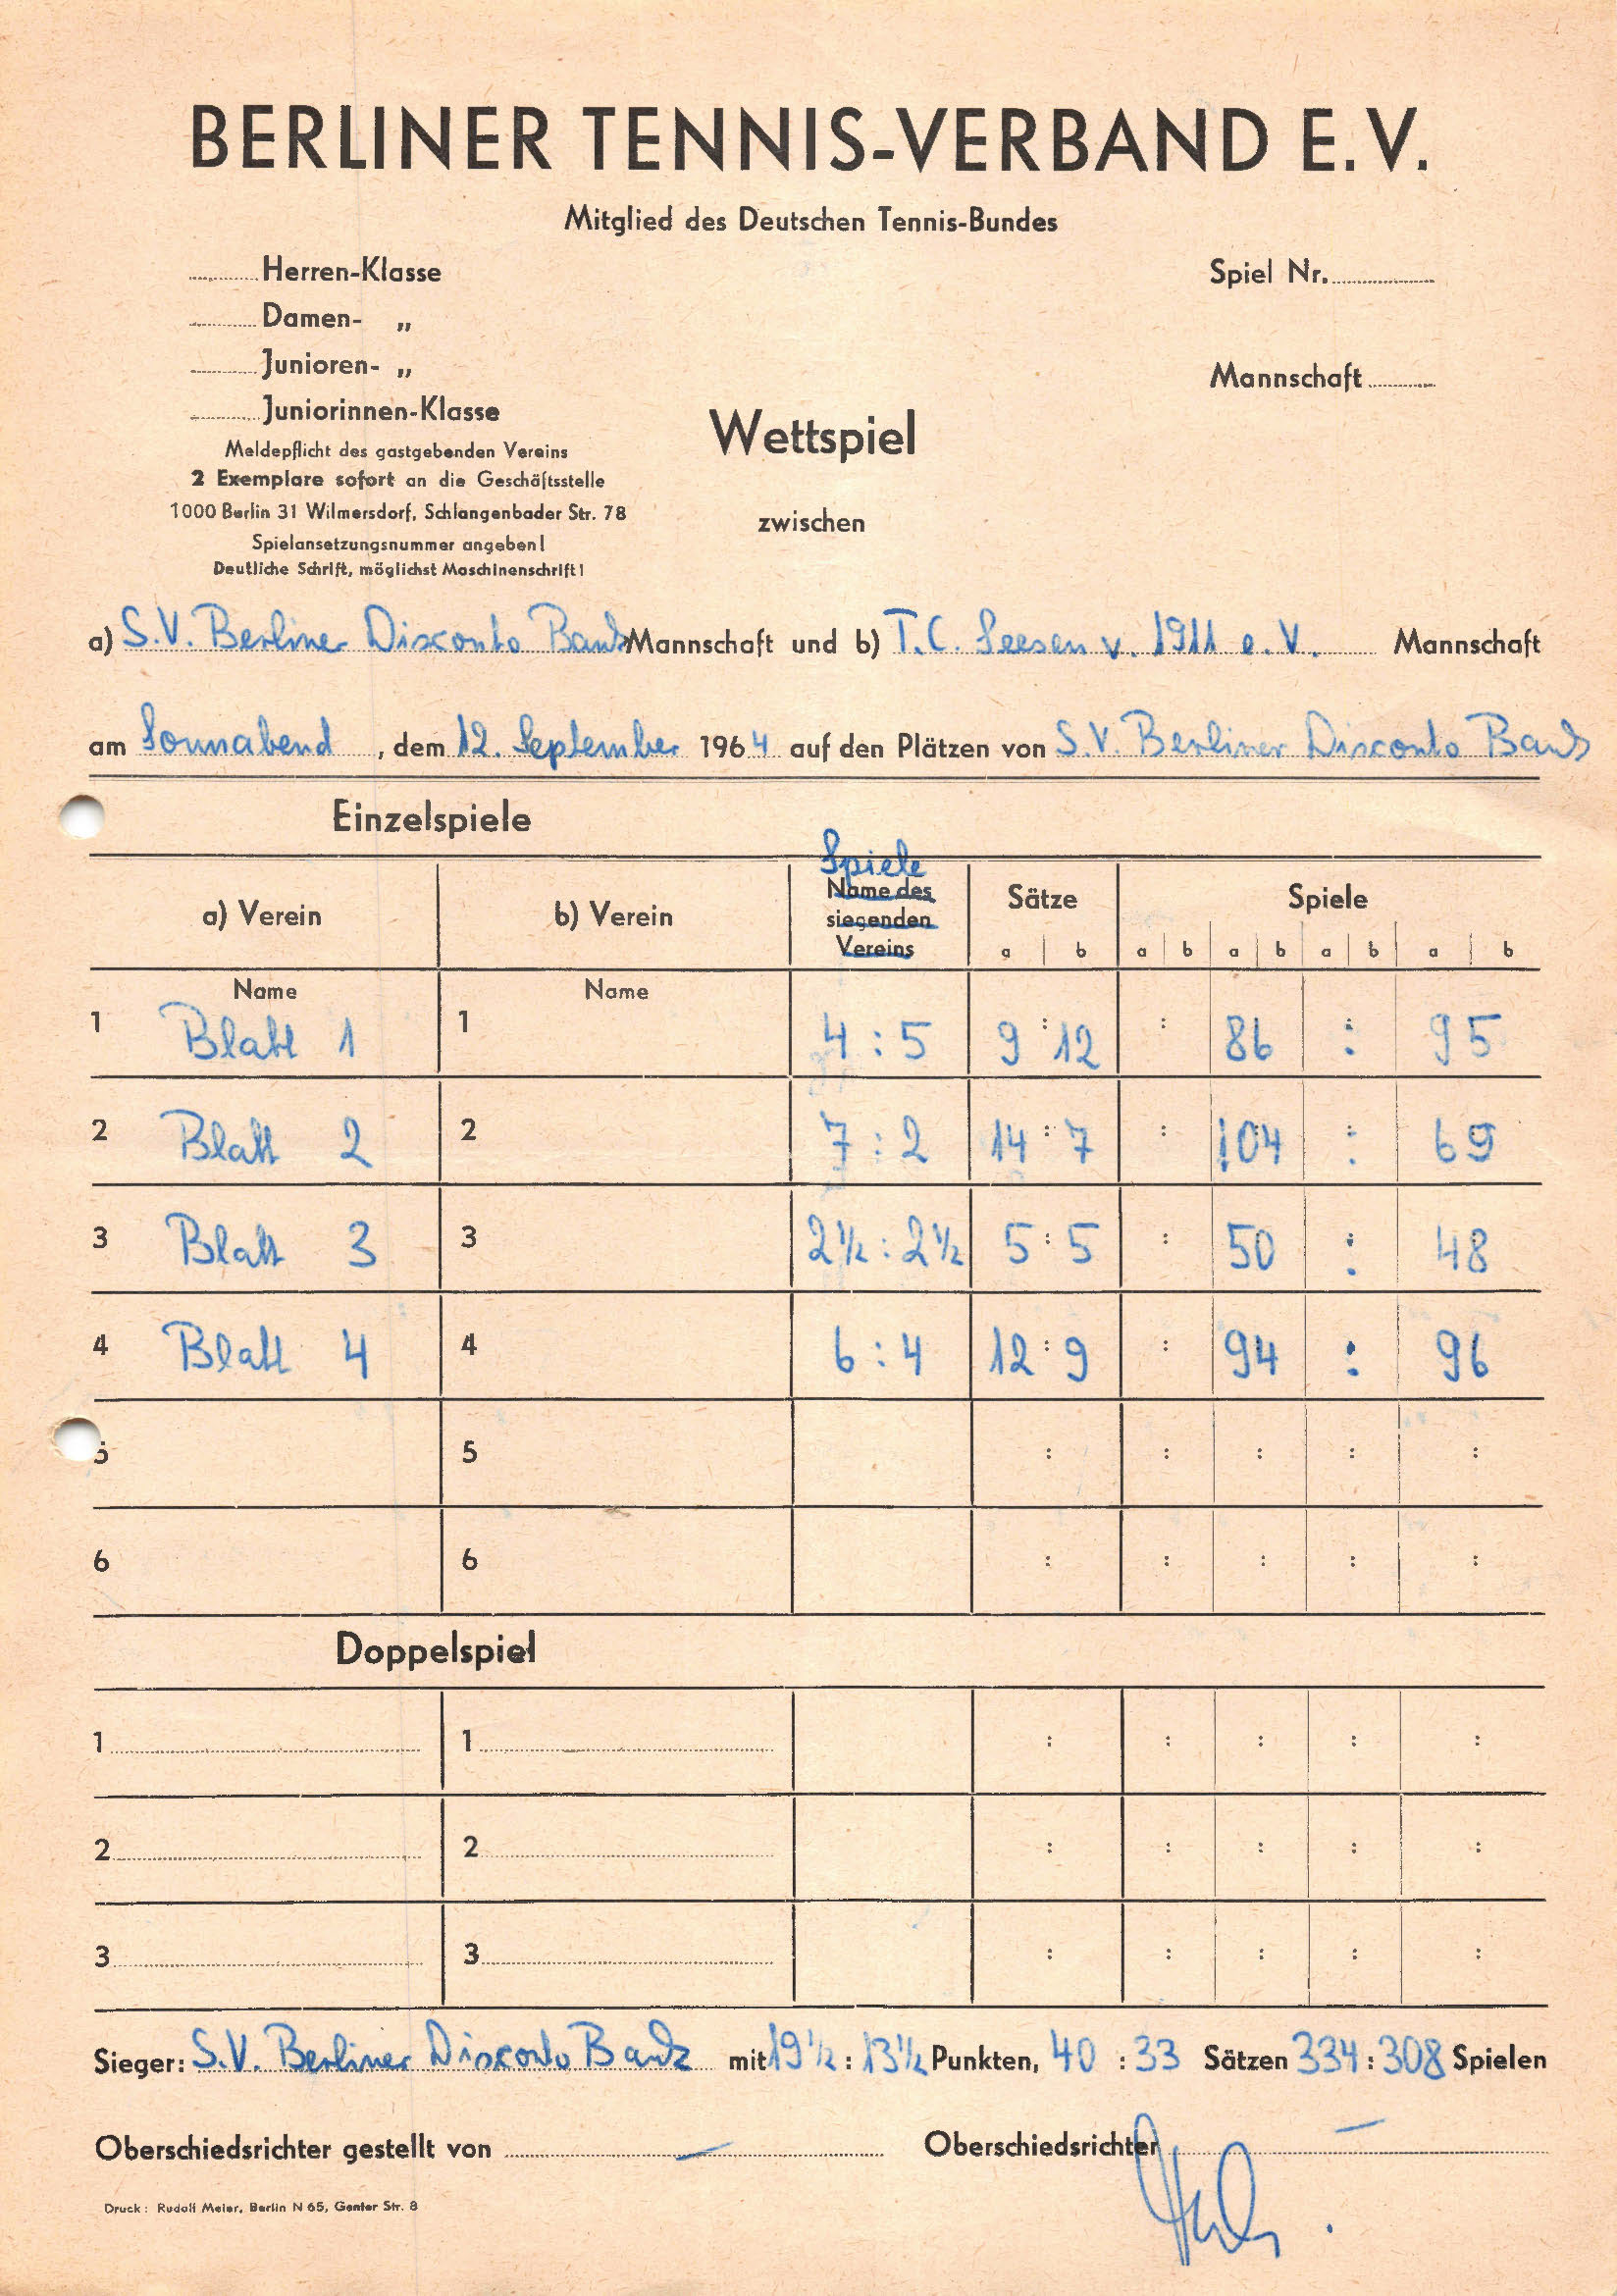 BERLINER TENNIS-VERBAND E.V.
Mitglied des Deutschen Tennis-Bundes
Herren-Klasse
Spiel Nr.
Damen- „
Junioren- „
Mannschaft
Juniorinnen-Klasse
Meldepflicht des gastgebenden Vereins
2 Exemplare sofort an die Geschäftsstelle
1000 Berlin 31 Wilmersdorf, Schlangenbader Str. 78
Spielansetzungsnummer angeben!
Deutliche Schrift, möglichst Maschinenschrift!
Wettspiel
zwischen
a) S.V. Berliner Disconto Bank Mannschaft und b) T.C. Seesen v. 1911 e.V. Mannschaft
am Sonnabend, dem 12. September 1964 auf den Plätzen von S.V. Berliner Disconto Bank
Einzelspiele
Spiele
a) Verein b) Verein Name des siegenden Vereins Sätze Spiele
a b a b a b a b a b
Name Name
1 Blatt 1 1 4 : 5 9 : 12 : 86 : 95
2 Blatt 2 2 7 : 2 14 : 7 : 104 : 69
3 Blatt 3 3 2½ : 2½ 5 : 5 : 50 : 48
4 Blatt 4 4 6 : 4 12 : 9 : 94 : 96
5 5 : : : : :
6 6 : : : : :
Doppelspiel
1 1 : : : : :
2 2 : : : : :
3 3 : : : : :
Sieger: S.V. Berliner Disconto Bank mit 19½ : 13½ Punkten, 40 : 33 Sätzen 334 : 308 Spielen
Oberschiedsrichter gestellt von — Oberschiedsrichter —
Druck: Rudolf Meier, Berlin N 65, Genter Str. 8